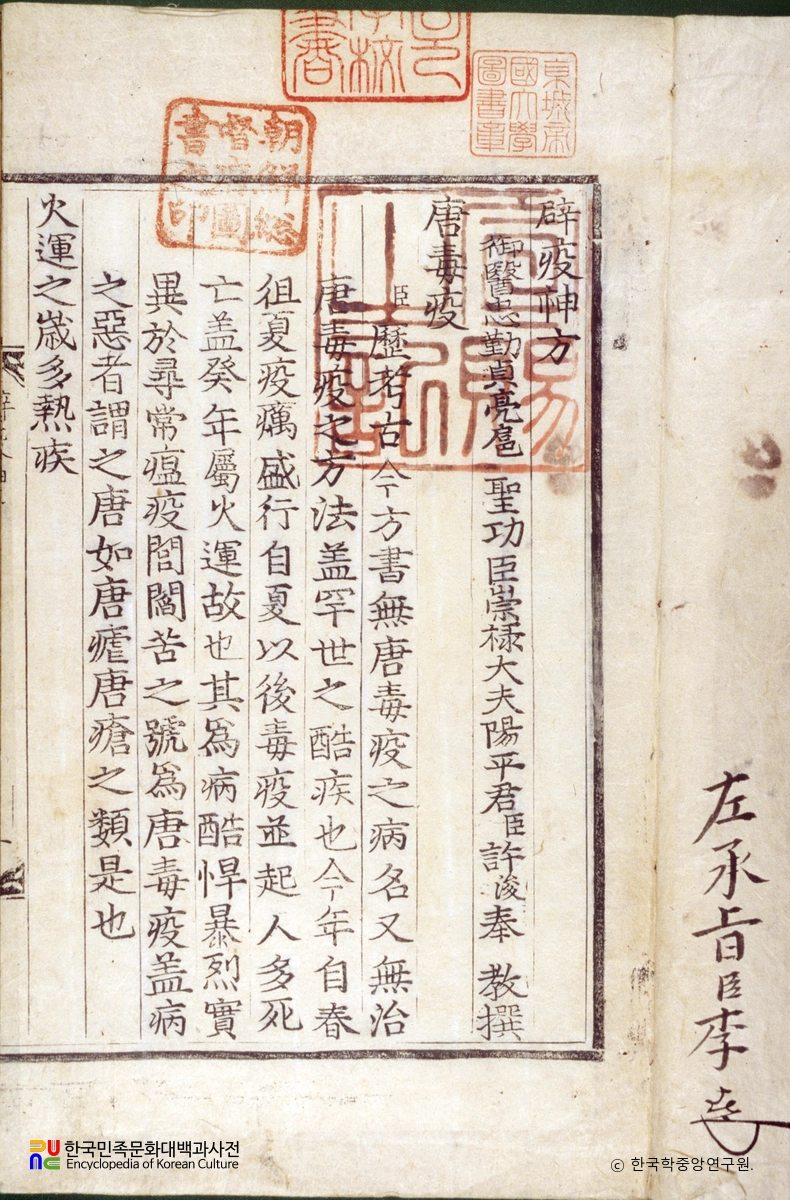 左承旨臣李
辟疫神方
御醫忠勤貞亮扈聖功臣崇祿大夫陽平君臣許浚奉教撰
唐毒疫
臣歷考古今方書無唐毒疫之病名又無治
唐毒疫之方法盖罕世之酷疾也今年自春
徂夏疫癘盛行自夏以後毒疫並起人多死
亡盖癸年屬火運故也其爲病酷悍暴烈實
異於尋常瘟疫閭閻苦之號爲唐毒疫盖病
之惡者謂之唐如唐瘧唐瘡之類是也
火運之歲多熱疾
朝鮮総
督府圖
書之印
京城帝
國大學
圖書章
宣賜
之記
한국민족문화대백과사전
Encyclopedia of Korean Culture
ⓒ 한국학중앙연구원.